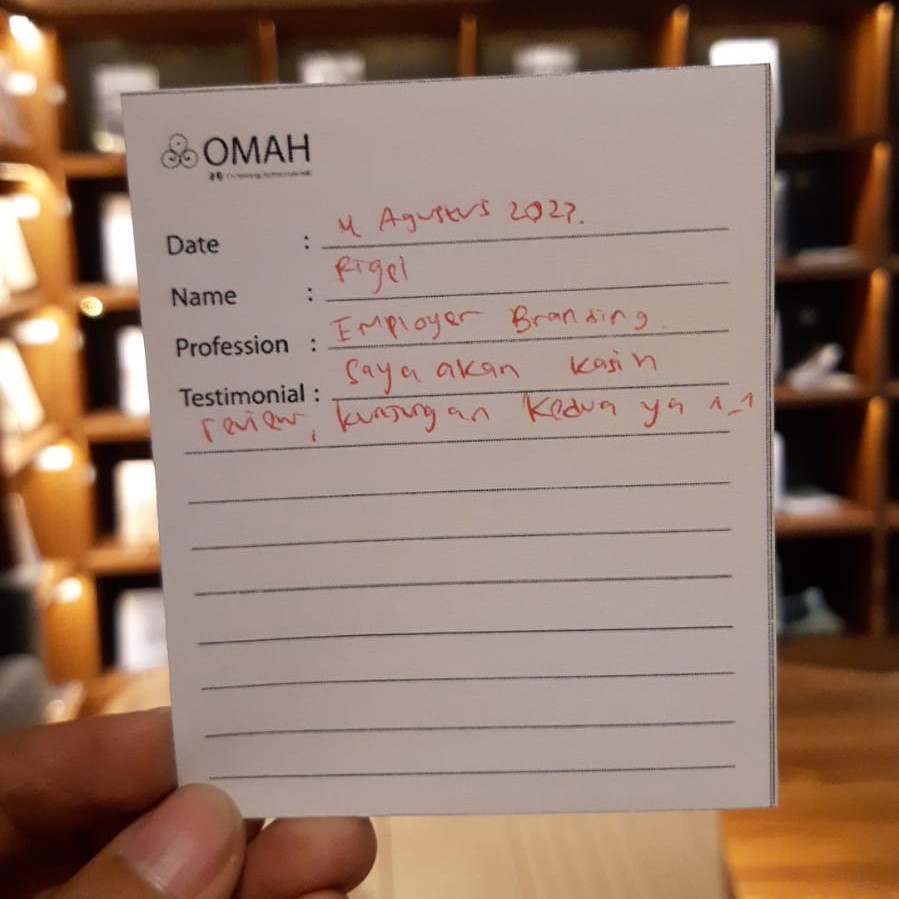 OMAH
Date : Agustus 2023.
Name : Rigel
Profession : Employer Branding
Testimonial : Saya akan kasih
review, kunjungan kedua ya ^_^